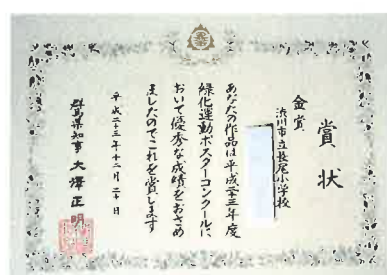 賞状
金賞
渋川市立長尾小学校
あなたの作品は平成二十三年度
緑化運動ポスターコンクールに
おいて優秀な成績をおさめ
ましたのでこれを賞します
平成二十三年十二月二十日
群馬県知事 大澤正明